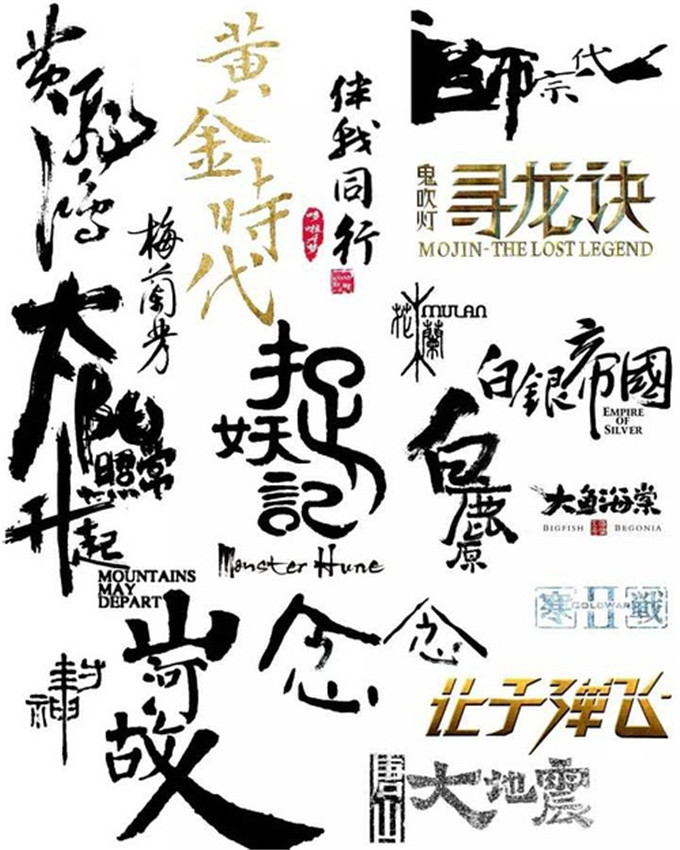 黄飛鴻
黄金時代
伴我同行
一代宗師
鬼吹灯
寻龙诀
MOJIN-THE LOST LEGEND
梅蘭芳
花木蘭
MULAN
白銀帝國
EMPIRE
OF
SILVER
太陽照常升起
捉妖記
Monster Hune
白鹿原
大鱼海棠
BIGFISH
BEGONIA
MOUNTAINS
MAY
DEPART
山河故人
念念
寒戦
II
COLDWAR
封神
让子弹飞
唐山
大地震